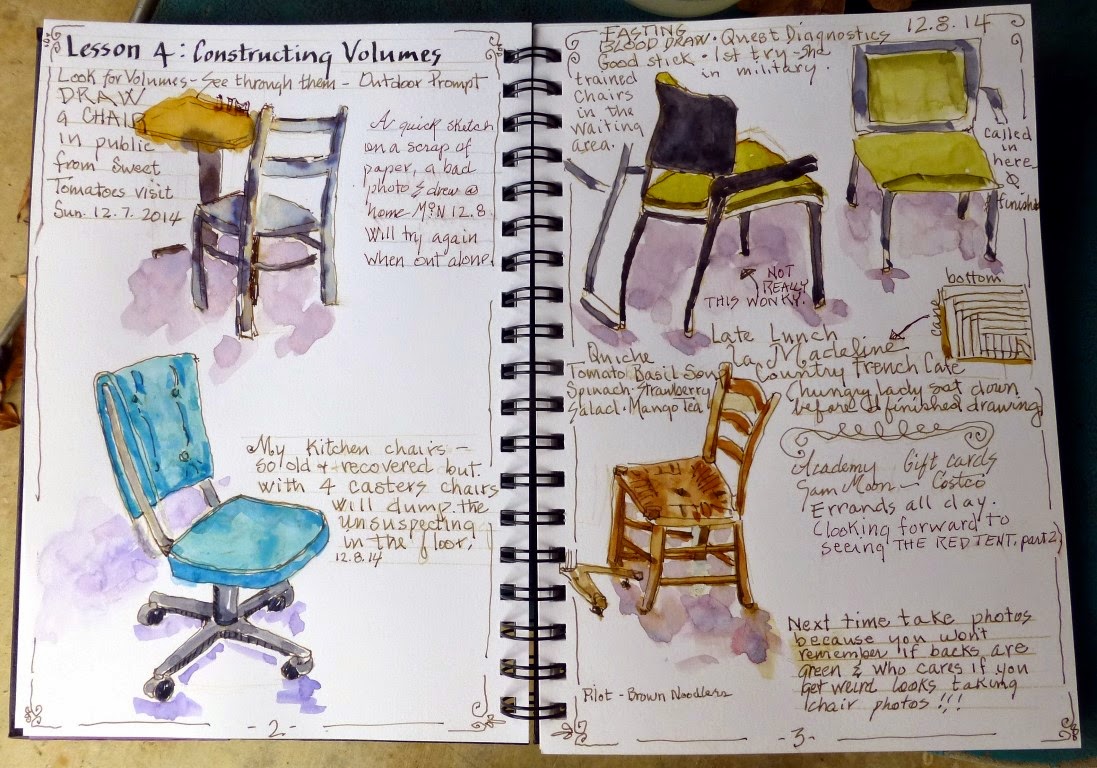 Lesson 4: Constructing Volumes
Look for Volumes - See through them - Outdoor Prompt
DRAW
a CHAIR
in public
from Sweet
Tomatoes visit
Sun. 12.7.2014
A quick sketch
on a scrap of
paper, a bad
photo & drew @
home MON 12.8
Will try again
when out alone.
My kitchen chairs -
so old & recovered but
with 4 casters chairs
will dump the
unsuspecting
in the floor.
12.8.14
-2-
12.8.14
FASTING
BLOOD DRAW · Quest Diagnostics
Good stick · 1st try - She
trained in military.
Chairs
in the
waiting
area.
called
in
here
&
finished
NOT
REALLY
THIS WONKY.
bottom
cane
Late Lunch
La Madeleine
Country French Cafe
Quiche
Tomato Basil Soup
Spinach · Strawberry
Salad · Mango Tea
(hungry lady sat down
before I finished drawing)
Academy Gift cards
Sam Moon - Costco
Errands all day.
(looking forward to
seeing THE RED TENT, part 2)
Next time take photos
because you won't
remember if backs are
green & who cares if you
get weird looks taking
chair photos!!!
Pilot - Brown Noodlers
-3-